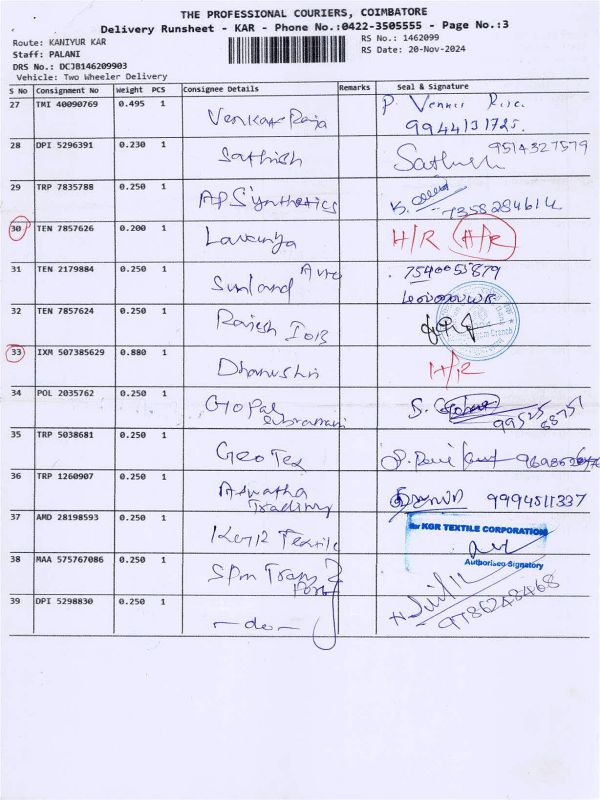 THE PROFESSIONAL COURIERS, COIMBATORE
Delivery Runsheet - KAR - Phone No.:0422-3505555 - Page No.:3
Route: KANIYUR KAR
RS No.: 1462099
Staff: PALANI
RS Date: 20-Nov-2024
DRS No.: DCJB146209903
Vehicle: Two Wheeler Delivery
S No Consignment No Weight PCS Consignee Details Remarks Seal & Signature
27 TMI 40090769 0.495 1 Venkat Raja
9944131725.
28 DPI 5296391 0.230 1 Sathish Sathish 9514327579
29 TRP 7835788 0.250 1 AP Synthetics 7358284614
30 TEN 7857626 0.200 1 Lavanya H/R H/R
31 TEN 2179884 0.250 1 Sunland Auto 7540055879
32 TEN 7857624 0.250 1 Rajesh IOB
33 IXM 507385629 0.880 1 Dhanushri H/R
34 POL 2035762 0.250 1 Gopal 99525 68751
35 TRP 5038681 0.250 1 Geo Tex
36 TRP 1260907 0.250 1 Aswatha Trading 9994511337
37 AMD 28198593 0.250 1 Textile
for KGR TEXTILE CORPORATION
Authorised Signatory
38 MAA 575767086 0.250 1 SPM Transport
39 DPI 5298830 0.250 1 -do- 9786248468